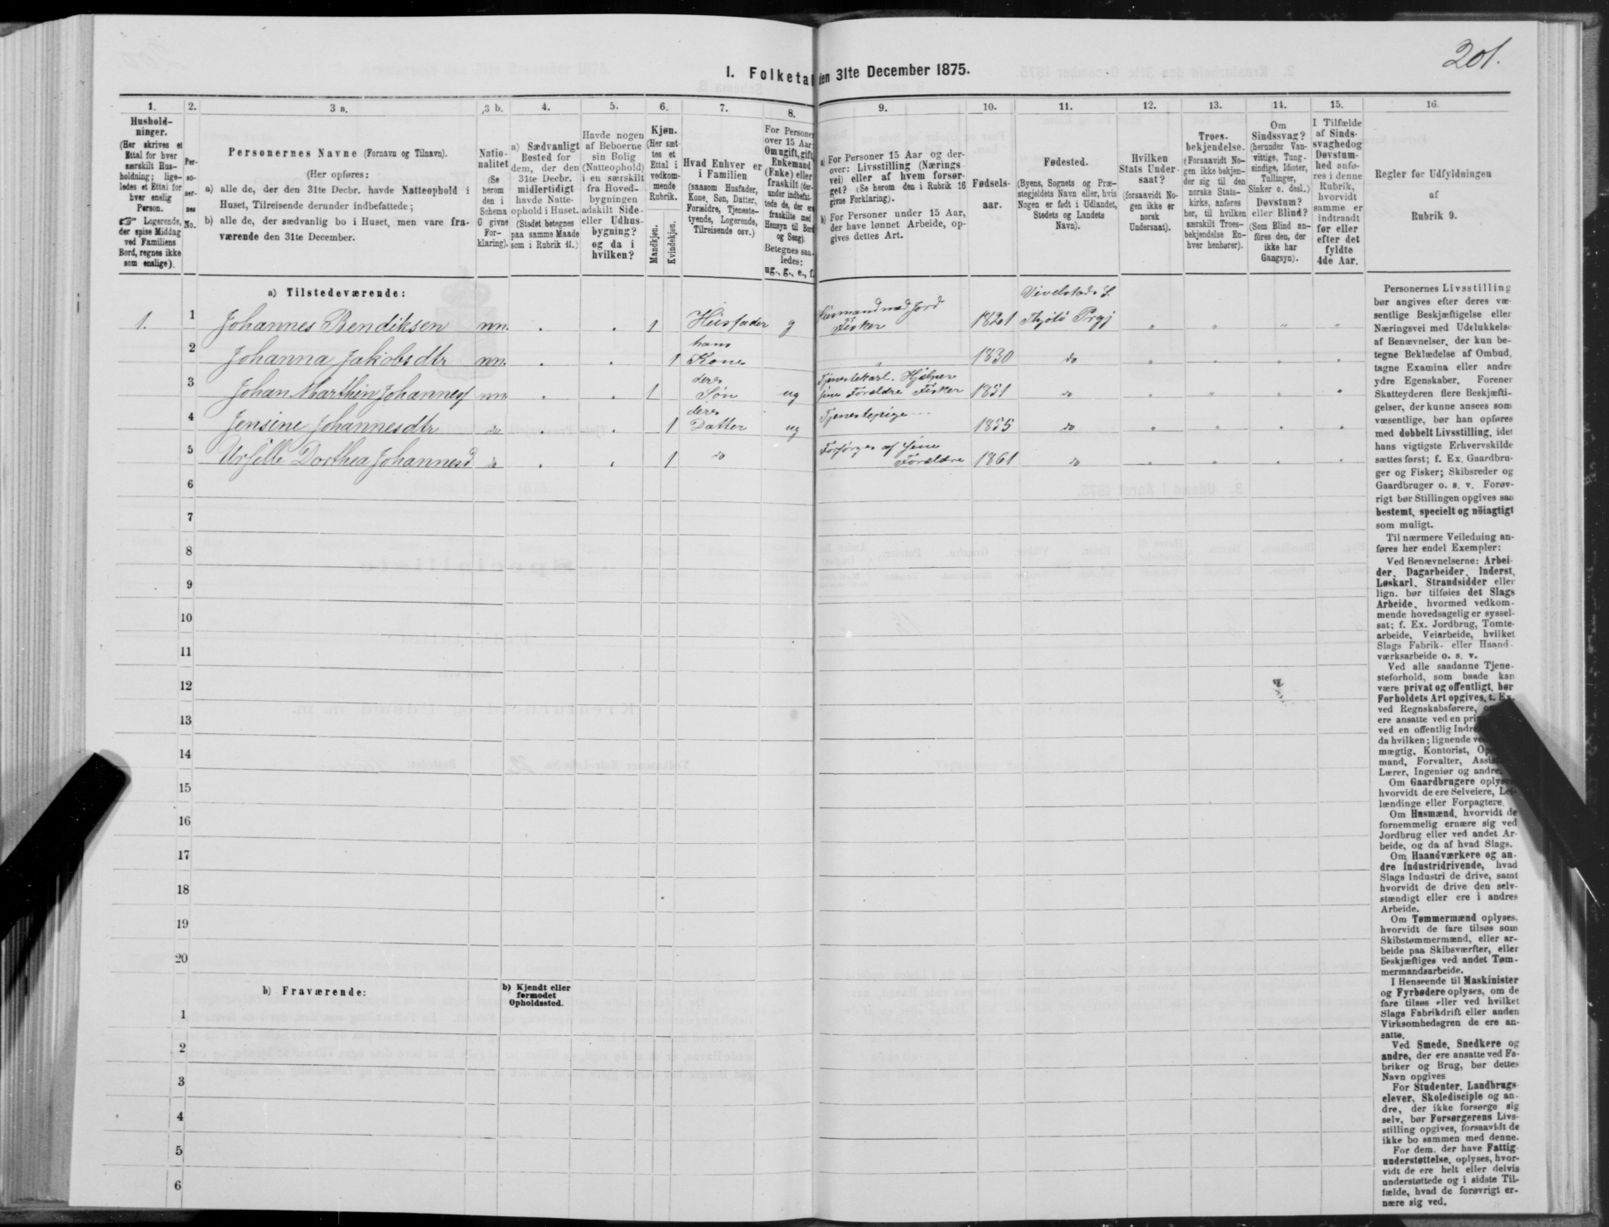 201.
I. Folketal den 31te December 1875.
1. 2. 3 a. 3 b. 4. 5. 6. 7. 8. 9. 10. 11. 12. 13. 14. 15. 16.
Hushold-
ninger.
(Her skrives et
Ettal for hver
særskilt Hus-
holdning; lige-
ledes et Ettal for
hver enslig
Person.
☞ Logerende,
der spise Middag
ved Familiens
Bord, regnes ikke
som enslige).
Per-
so-
ner-
nes
No.
Personernes Navne (Fornavn og Tilnavn).
(Her opføres:
a) alle de, der den 31te Decbr. havde Natteophold i
Huset, Tilreisende derunder indbefattede;
b) alle de, der sædvanlig bo i Huset, men vare fra-
værende den 31te December.
Natio-
nalitet
(Se
herom
den i
Schema
G givne
For-
klaring).
a) Sædvanligt
Bosted for
dem, der den
31te Decbr.
midlertidigt
havde Natte-
ophold i Huset.
(Stedet betegnes
paa samme Maade
som i Rubrik 11.)
Havde nogen
af Beboerne
sin Bolig
(Natteophold)
i en særskilt
fra Hoved-
bygningen
adskilt Side-
eller Udhus-
bygning?
og da i
hvilken?
Kjøn.
(Her sæt-
tes et
Ettal i
vedkom-
mende
Rubrik.
Mandkjøn.
Kvindekjøn.
Hvad Enhver er
i Familien
(saasom Husfader,
Kone, Søn, Datter,
Forældre, Tjeneste-
tyende, Logerende,
Tilreisende osv.)
For Personer
over 15 Aar:
Om ugift, gift,
Enkemand
(Enke) eller
fraskilt (der-
under indbefat-
tede de, der ere
fraskilte med
Hensyn til Bord
og Seng).
Betegnes saa-
ledes:
ug., g., e., f.
a) For Personer 15 Aar og der-
over: Livsstilling (Nærings-
vei) eller af hvem forsør-
get? (Se herom den i Rubrik 16
givne Forklaring).
b) For Personer under 15 Aar,
der have lønnet Arbeide, op-
gives dettes Art.
Fødsels-
aar.
Fødested.
(Byens, Sognets og Præ-
stegjeldets Navn eller, hvis
Nogen er født i Udlandet,
Stedets og Landets
Navn).
Hvilken
Stats Under-
saat?
(forsaavidt No-
gen ikke er
norsk
Undersaat).
Troes-
bekjendelse.
(Forsaavidt No-
gen ikke bekjen-
der sig til den
norske Stats-
kirke, anføres
her, til hvilken
særskilt Troes-
bekjendelse En-
hver henhører).
Om
Sindssvag?
(herunder Van-
vittige, Tung-
sindige, Idioter,
Tullinger,
Sinker o. desl.)
Døvstum?
eller Blind?
(Som Blind an-
føres den, der
ikke har
Gangsyn).
I Tilfælde
af Sinds-
svaghed og
Døvstum-
hed anfø-
res i denne
Rubrik,
hvorvidt
samme er
indtraadt
før eller
efter det
fyldte
4de Aar.
Regler for Udfyldningen
af
Rubrik 9.
a) Tilstedeværende:
1. 1 Johannes Bendiksen nn. 1 Husfader g Husmand med Jord Fisker 1821 Thjøtø Prgj
2 Johanna Jakobsdtr nn. 1 hans Kone 1830 do
3 Johan Marthin Johannes nn. 1 deres Søn ug Tjenestekarl. Hjelper sine Forældre Fisker 1851 do
4 Jensine Johannesdtr do 1 deres Datter ug Tjenestepige 1855 do
5 Dorthea Johannesd do 1 do Forsørges af sine Forældre 1861 do
6
7
8
9
10
11
12
13
14
15
16
17
18
19
20
b) Fraværende:
b) Kjendt eller
formodet
Opholdssted.
1
2
3
4
5
6
Personernes Livsstilling
bør angives efter deres væ-
sentlige Beskjæftigelse eller
Næringsvei med Udelukkelse
af Benævnelser, der kun be-
tegne Beklædelse af Ombud,
tagne Examina eller andre
ydre Egenskaber. Forener
Skatteyderen flere Beskjæfti-
gelser, der kunne ansees som
væsentlige, bør han opføres
med dobbelt Livsstilling, idet
hans vigtigste Erhvervskilde
sættes først; f. Ex. Gaardbru-
ger og Fisker; Skibsreder og
Gaardbruger o. s. v. Forøv-
rigt bør Stillingen opgives saa
bestemt, specielt og nöiagtigt
som muligt.
Til nærmere Veiledning an-
føres her endel Exempler:
Ved Benævnelserne: Arbei-
der, Dagarbeider, Inderst,
Løskarl, Strandsidder eller
lign. bør tilføies det Slags
Arbeide, hvormed vedkom-
mende hovedsagelig er syssel-
sat; f. Ex. Jordbrug, Tomte-
arbeide, Veiarbeide, hvilket
Slags Fabrik- eller Haand-
værksarbeide o. s. v.
Ved alle saadanne Tjene-
steforhold, som baade kan
være privat og offentligt, bør
Forholdets Art opgives, f. Ex.
ved Regnskabsførere,
ere ansatte ved en
ved en offentlig
da hvilken; lignende
mægtig, Kontorist,
mand, Forvalter,
Lærer, Ingeniør og andre.
Om Gaardbrugere oplyses,
hvorvidt de ere Selveiere, Lei-
lændinge eller Forpagtere.
Om Husmænd, hvorvidt de
fornemmelig ernære sig ved
Jordbrug eller ved andet Ar-
beide, og da af hvad Slags.
Om Haandværkere og an-
dre Industridrivende, hvad
Slags Industri de drive, samt
hvorvidt de drive den selv-
stændigt eller ere i andres
Arbeide.
Om Tømmermænd oplyses,
hvorvidt de fare tilsøs som
Skibstømmermænd, eller ar-
beide paa Skibsværfter, eller
beskjæftiges ved andet Tøm-
mermandsarbeide.
I Henseende til Maskinister
og Fyrbødere oplyses, om de
fare tilsøs eller ved hvilket
Slags Fabrikdrift eller anden
Virksomhedsgren de ere an-
satte.
Ved Smede, Snedkere og
andre, der ere ansatte ved Fa-
briker og Brug, bør dettes
Navn opgives
For Studenter, Landbrugs-
elever, Skoledisciple og an-
dre, der ikke forsørge sig
selv, bør Forsørgerens Livs-
stilling opgives, forsaavidt de
ikke bo sammen med denne.
For dem, der have Fattig-
understøttelse, oplyses, hvor-
vidt de ere helt eller delvis
understøttede og i sidste Til-
fælde, hvad de forøvrigt er-
nære sig ved.